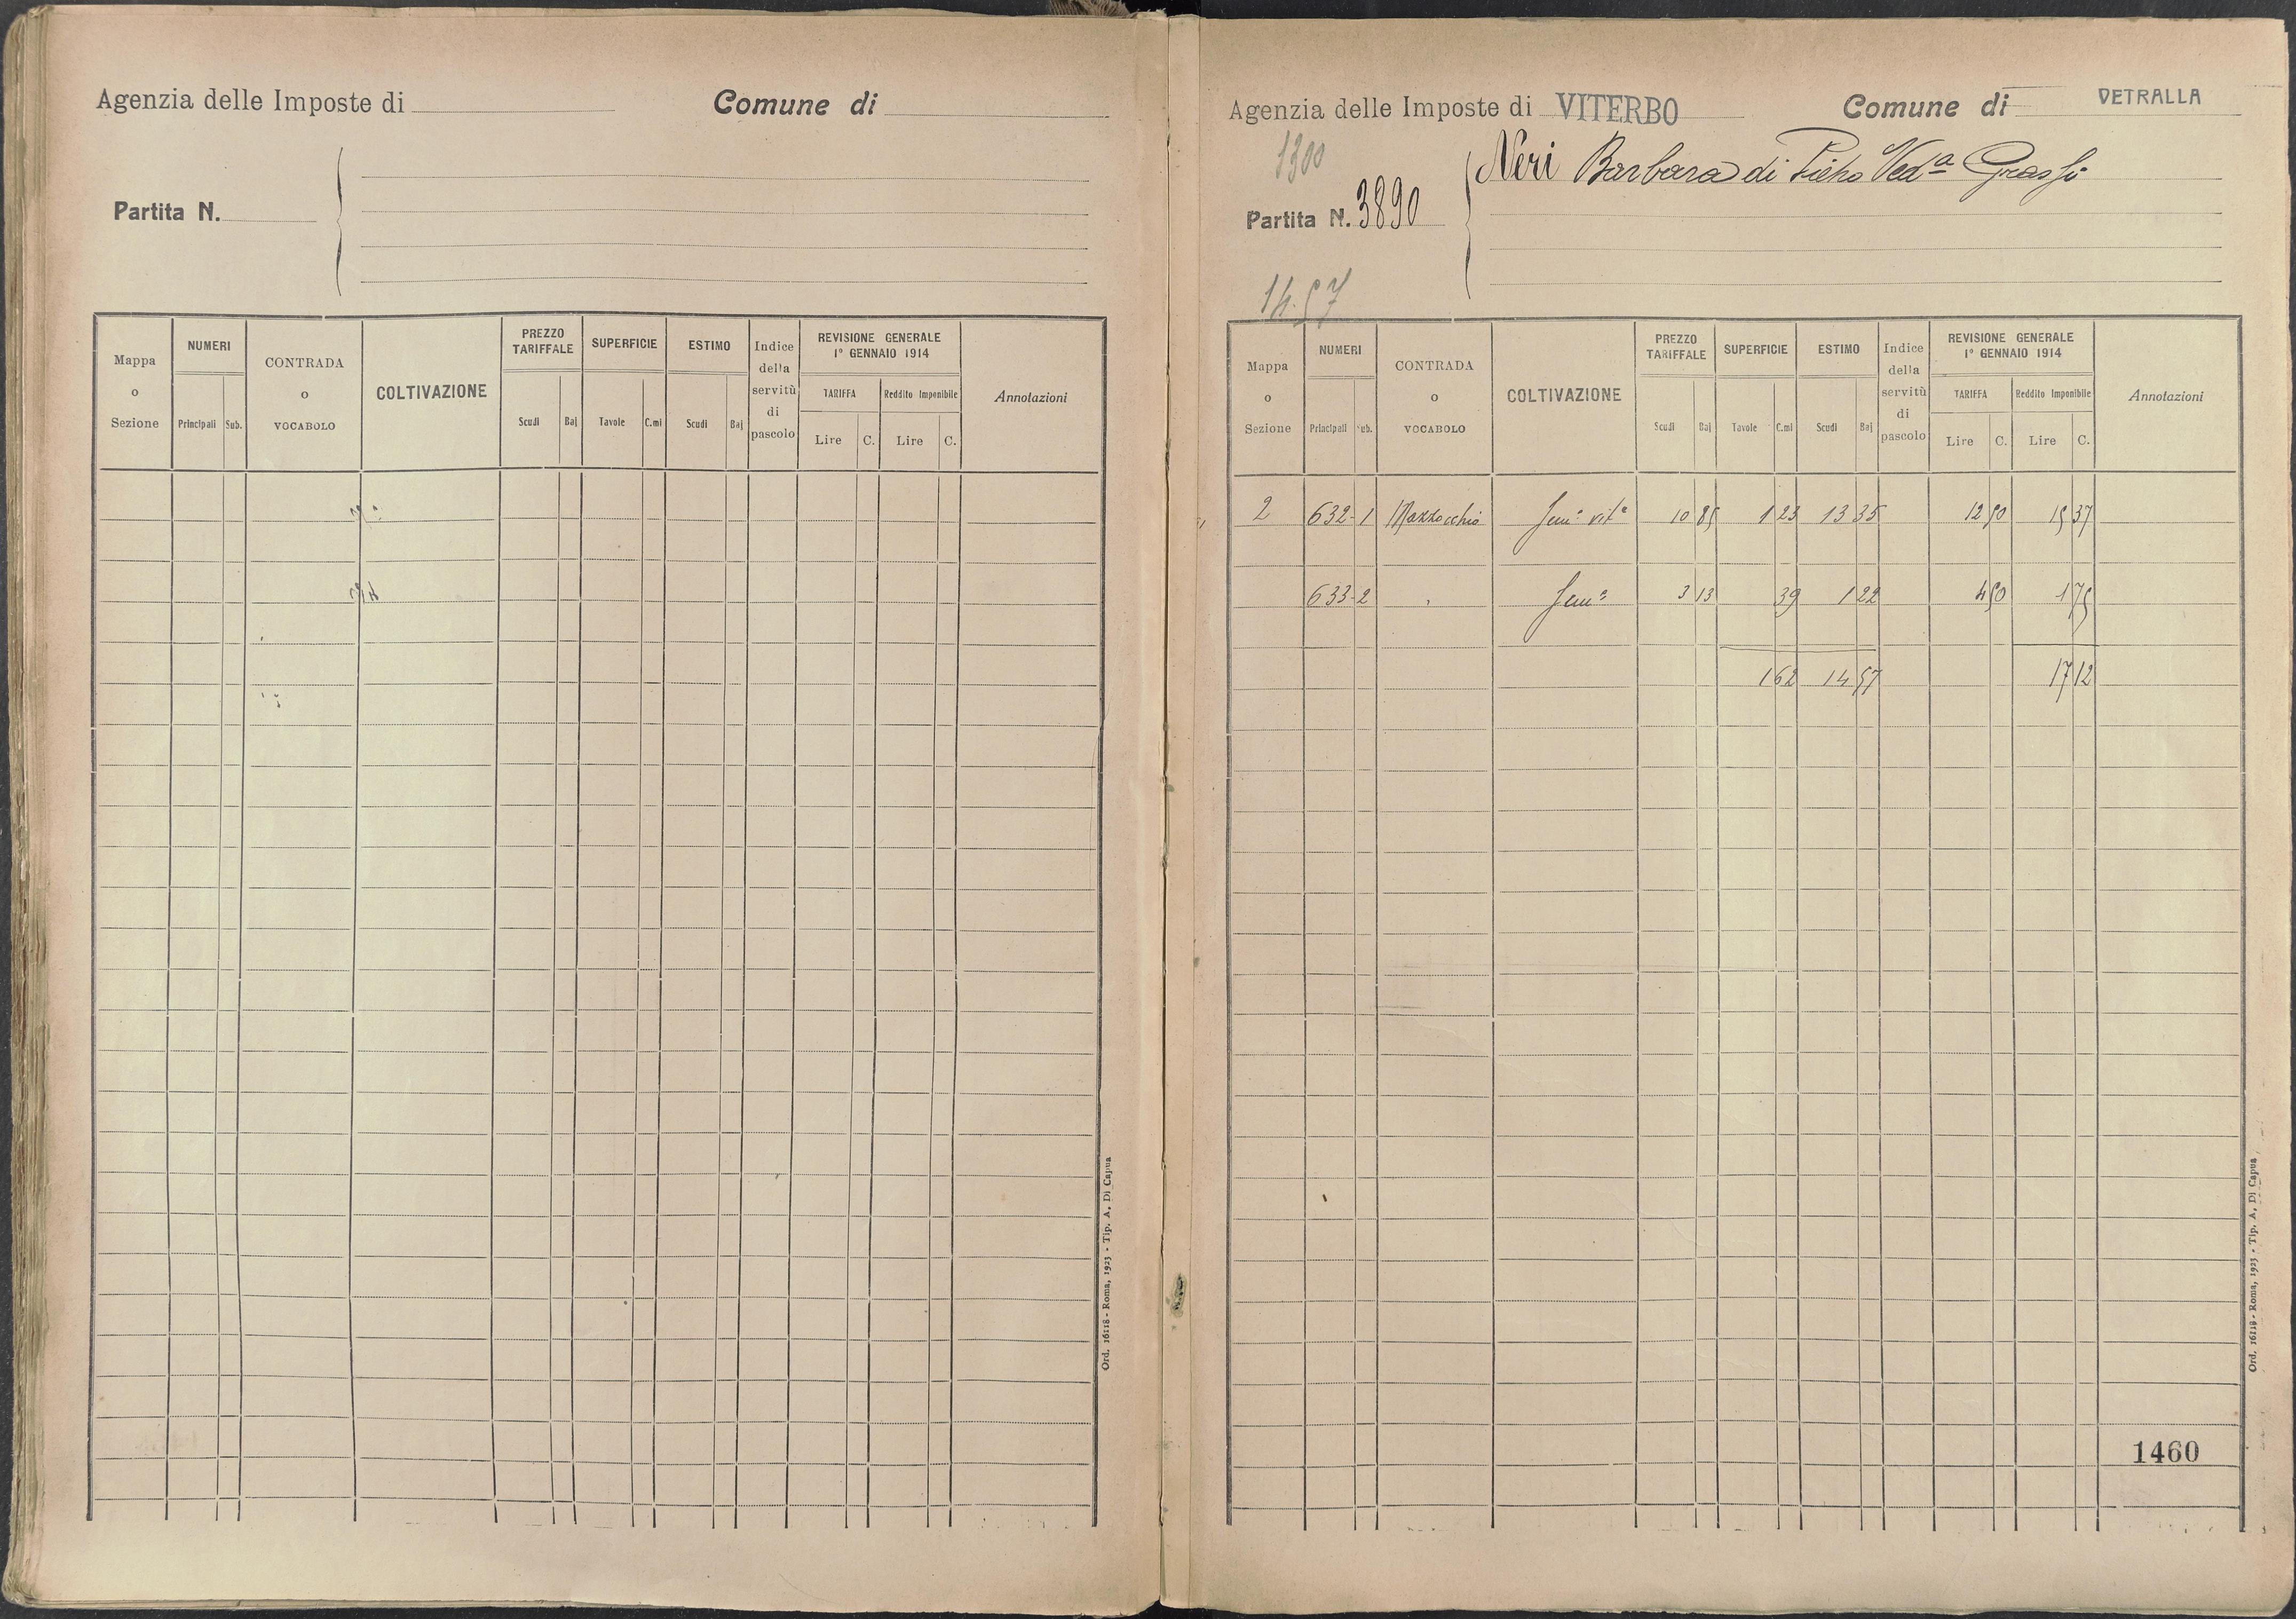 Agenzia delle Imposte di Comune di
Partita N.
Mappa o Sezione
NUMERI
Principali Sub.
CONTRADA o VOCABOLO
COLTIVAZIONE
PREZZO TARIFFALE
Scudi Baj
SUPERFICIE
Tavole C.mi
ESTIMO
Scudi Baj
Indice della servitù di pascolo
REVISIONE GENERALE
1° GENNAIO 1914
TARIFFA Reddito Imponibile
Lire C. Lire C.
Annotazioni
Ord. 16118 - Roma, 1923 - Tip. A. Di Capua
Agenzia delle Imposte di VITERBO Comune di VETRALLA
1300
Neri Barbara di Pietro Ved.a Grassi
Partita N. 3890
14.57
Mappa o Sezione
NUMERI
Principali Sub.
CONTRADA o VOCABOLO
COLTIVAZIONE
PREZZO TARIFFALE
Scudi Baj
SUPERFICIE
Tavole C.mi
ESTIMO
Scudi Baj
Indice della servitù di pascolo
REVISIONE GENERALE
1° GENNAIO 1914
TARIFFA Reddito Imponibile
Lire C. Lire C.
Annotazioni
2 632-1 Mazzocchio Sem.o vit.o 10 85 1 23 13 35 12 50 15 37
633-2 " Sem.o 3 13 39 1 22 4 50 1 75
1 62 14 57 17 12
1460
Ord. 16118 - Roma, 1923 - Tip. A. Di Capua